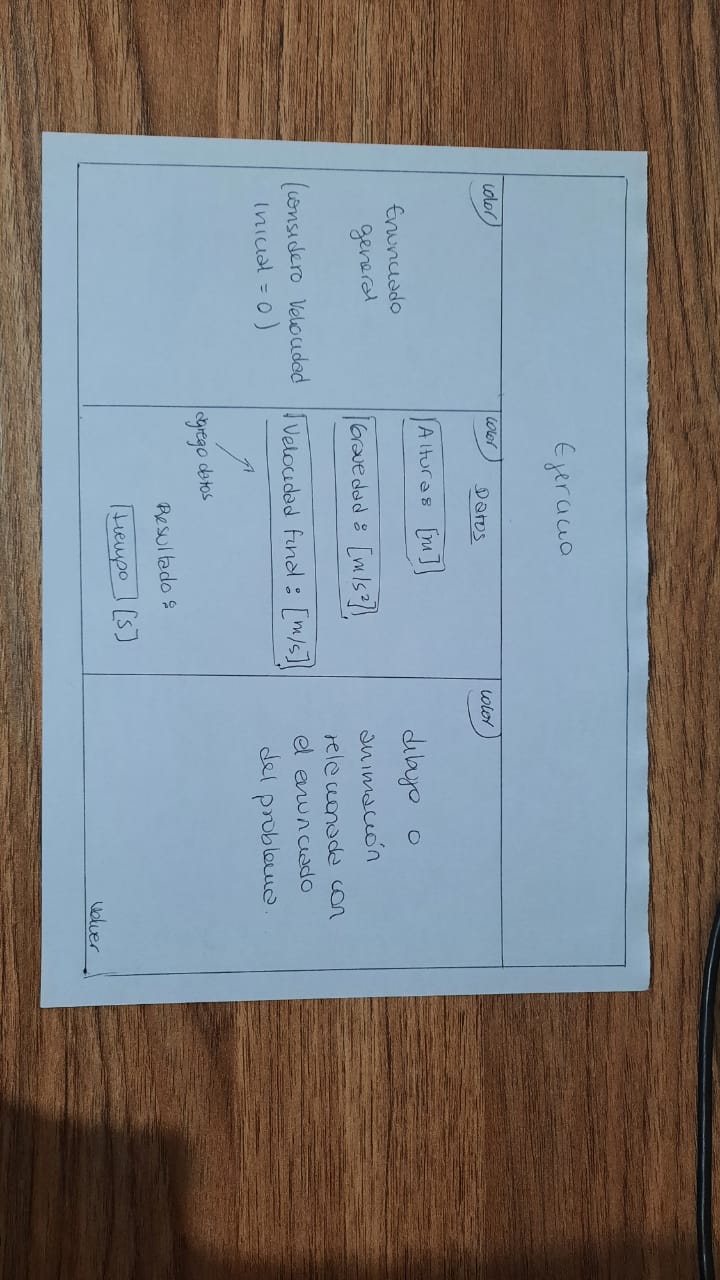 Ejercicio
color
Enunciado
general
(considero Velocidad
inicial = 0)
color
Datos
Altura: [m]
Gravedad: [m/s²]
Velocidad final: [m/s]
agrego datos
Resultado:
tiempo [s]
color
dibujo o
animación
relacionada con
el enunciado
del problema.
volver